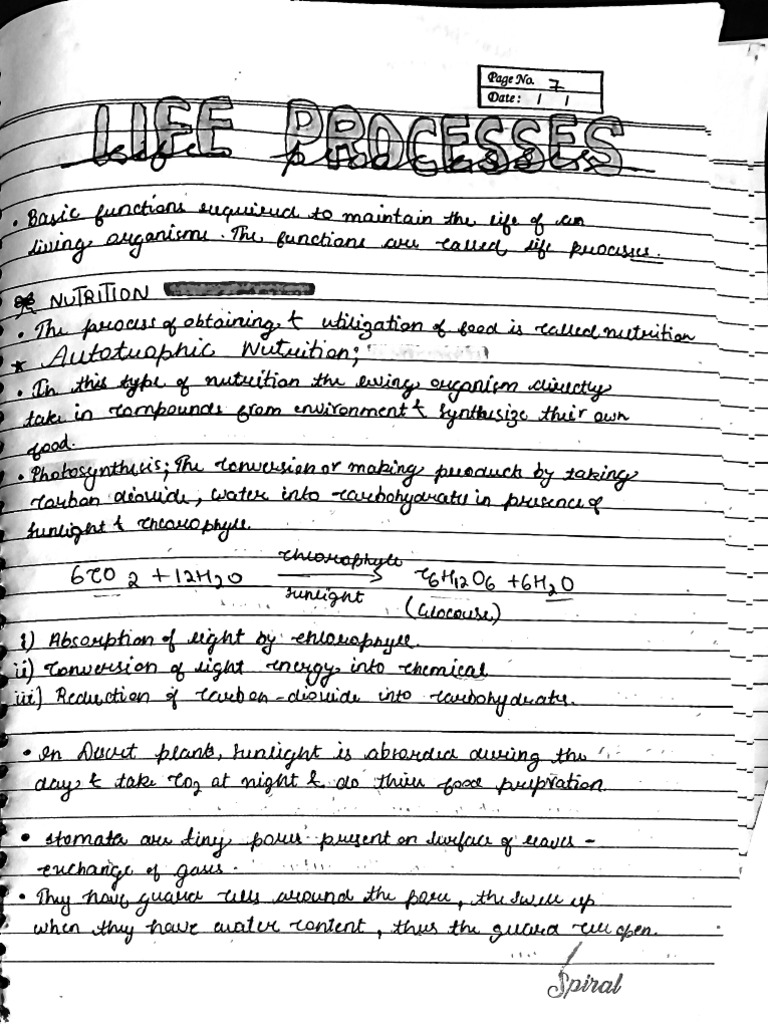 Page No. 7
Date: / /
LIFE PROCESSES
life processes
• Basic functions required to maintain the life of an
living organisms. The functions are called life processes.
* NUTRITION
• The process of obtaining & utilization of food is called nutrition
* Autotrophic Nutrition;
• In this type of nutrition the living organism directly
take in compounds from environment & synthesize their own
food.
• Photosynthesis; The conversion or making product by taking
carbon dioxide, water into carbohydrate in presence of
sunlight & chlorophyll.
chlorophyll
6CO2 + 12H2O → C6H12O6 + 6H2O
sunlight (Glocouse)
i) Absorption of light by chlorophyll.
ii) conversion of light energy into chemical
iii) Reduction of carbon-dioxide into carbohydrate.
• In Desert plant, sunlight is absorded during the
day & take CO2 at night & do thier food prepration.
• stomata are tiny pores present on surface of leaves -
exchange of gases.
• They have guard cells around the pore, the swell up
when they have water content, thus the guard cell open.
Spiral